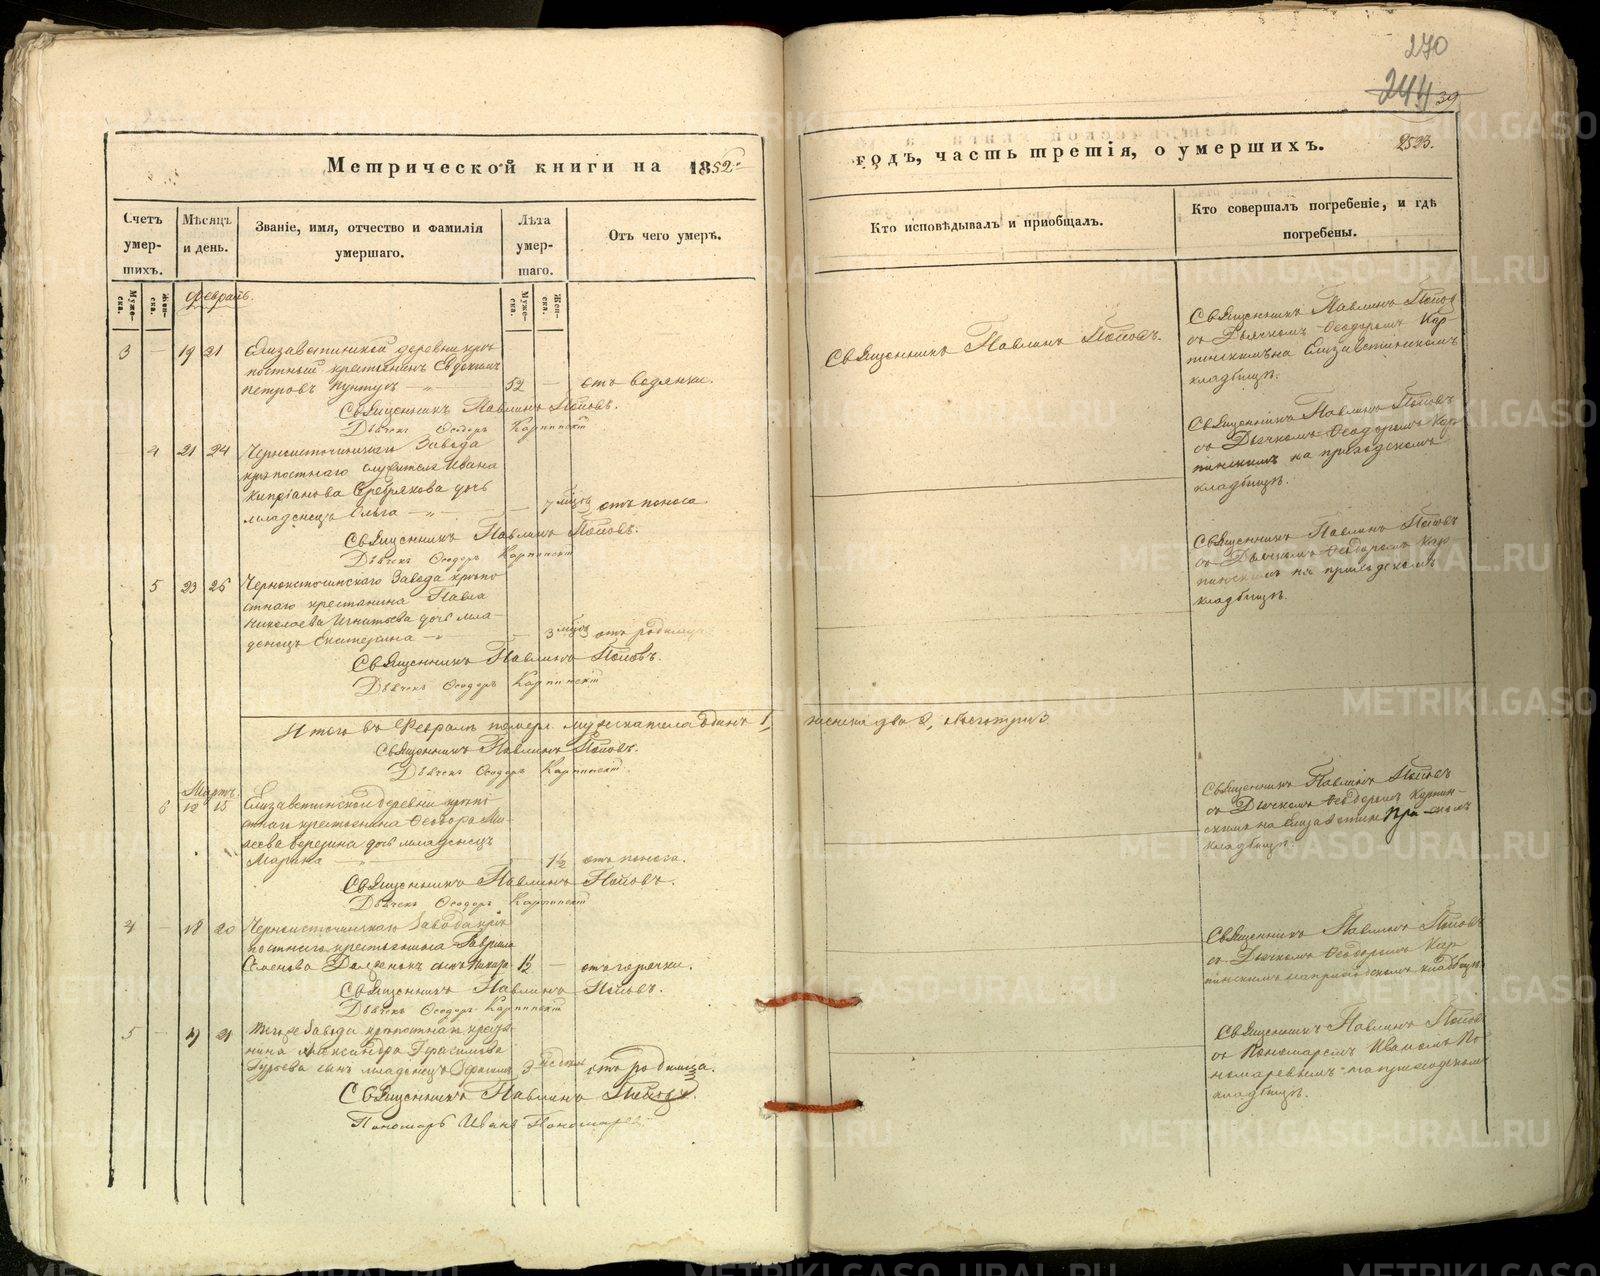 270
244 39
2523.
Метрической книги на 1852й
годъ, часть третія, о умершихъ.
Счетъ умер-шихъ.
Мѣсяцъ и день.
Званіе, имя, отчество и фамилія умершаго.
Лѣта умер-шаго.
Отъ чего умеръ.
Кто исповѣдывалъ и пріобщалъ.
Кто совершалъ погребеніе, и гдѣ погребены.
Муже-ска.
Жен-ска.
Муже-ска.
Жен-ска.
Февраль.
3 — 19 21 Елизаветинской деревни крѣ
постный крестьянинъ Евдокимъ
Петровъ 52 — отъ водянки.
Священникъ Павлинъ Поповъ.
Дьячекъ Ѳеодоръ Карпинскій
Священникъ Павлинъ Поповъ.
Священникъ Павлинъ Поповъ
съ Дьячкомъ Ѳеодоромъ Кар
пинскимъ на Елизаветинскомъ
кладбищѣ.
4 21 24 Черноисточинскаго Завода
крѣпостнаго служителя Ивана
Кипріанова Серебрякова дочь
младенецъ Ольга — 7 мѣсяц отъ поноса.
Священникъ Павлинъ Поповъ.
Дьячекъ Ѳеодоръ Карпинскій
Священникъ Павлинъ Поповъ
съ Дьячкомъ Ѳеодоромъ Кар
пинскимъ на приходскомъ
кладбищѣ.
5 23 25 Черноисточинскаго Завода крѣпо
стнаго крестьянина Павла
Николаева Игнатьева дочь мла
денецъ Екатерина — 3 мѣсяц отъ родимца
Священникъ Павлинъ Поповъ.
Дьячекъ Ѳеодоръ Карпинскій
Священникъ Павлинъ Поповъ
съ Дьячкомъ Ѳеодоромъ Кар
пинскимъ на приходскомъ
кладбищѣ.
Итого въ Февралѣ померло мужеска пола одинъ 1, женска два 2, обоего три 3.
Священникъ Павлинъ Поповъ.
Дьячекъ Ѳеодоръ Карпинскій.
Мартъ.
6 12 15 Елизаветинской деревни крѣпо
стнаго крестьянина Ѳеодора
дочь младенецъ
Марина — 1½ отъ поноса.
Священникъ Павлинъ Поповъ.
Дьячекъ Ѳеодоръ Карпинскій
Священникъ Павлинъ Поповъ
съ Дьячкомъ Ѳеодоромъ Карпин-
скимъ на
кладбищѣ.
4 — 18 20 Черноисточинскаго Завода крѣ
постнаго крестьянина Гаврила
Семенова сынъ 1½ — отъ горячки.
Священникъ Павлинъ Поповъ.
Дьячекъ Ѳеодоръ Карпинскій
Священникъ Павлинъ Поповъ
съ Дьячкомъ Ѳеодоромъ Кар
пинскимъ на приходскомъ кладбищѣ.
5 — 19 21 Того же Завода крѣпостнаго крестья
нина Александра Герасимова
Гурьева сынъ младенецъ 3 отъ родимца.
Священникъ Павлинъ Поповъ.
Пономарь Иванъ Пономаревъ
Священникъ Павлинъ Поповъ
съ Пономаремъ Иваномъ По
номаревымъ на приходскомъ
кладбищѣ.
METRIKI.GASO-URAL.RU